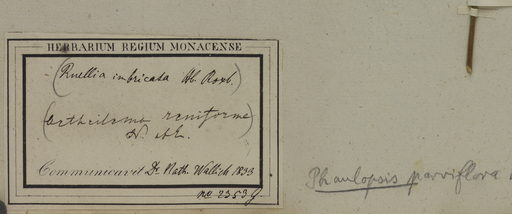 HERBARIUM REGIUM MONACENSE
(Ruellia imbricata Hb. Roxb.)
(Aetheilema reniforme)
N. ab E.
Communicavit Dr. Nath. Wallich 1833
no 2353 g.
Phaulopsis parviflora